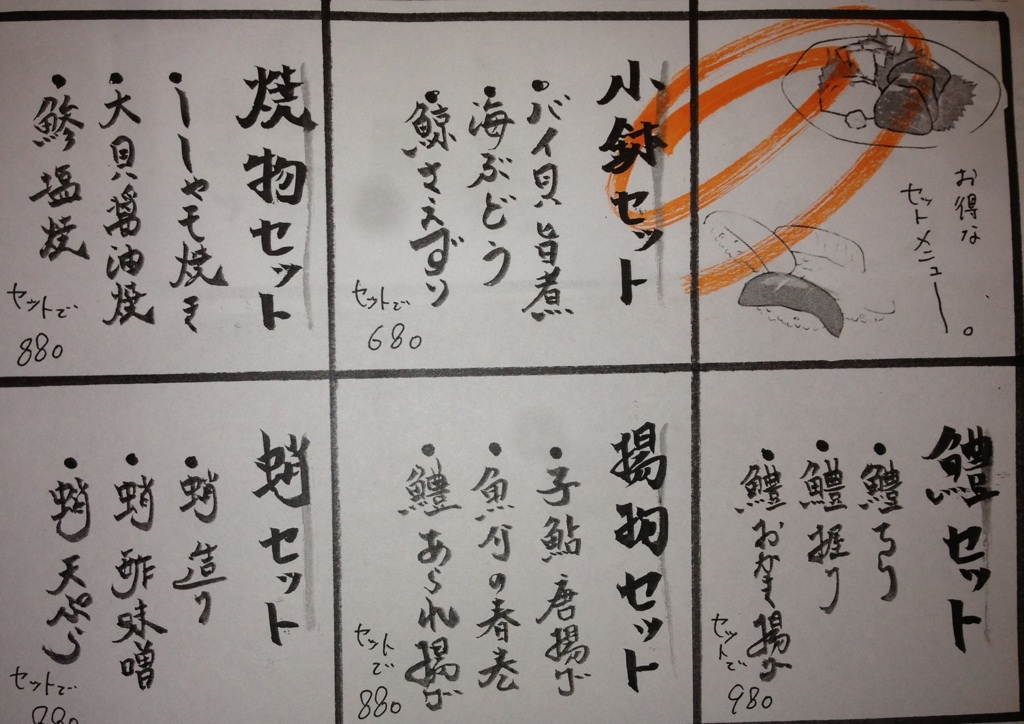 お得な
セットメニュー。
小鉢セット
・バイ貝旨煮
・海ぶどう
・鯨さえずり
セットで
680
焼物セット
・ししゃモ焼き
・大貝醤油焼
・鯵塩焼
セットで
880
鱧セット
・鱧ちり
・鱧握り
・鱧おかき揚げ
セットで
980
揚物セット
・子鮎唐揚げ
・魚介の春巻
・鱧あられ揚げ
セットで
880
蛸セット
・蛸造り
・蛸酢味噌
・蛸天ぷら
セットで